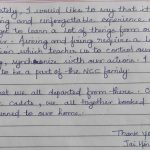 lately, I would like to say that it
ing and unforgettable experience
get to learn a lot of things from our
. Aiming and firing require a l
ion which teacher is to control our
, synchronize with our actions. I
to be a part of the NCC family.
that we all departed from there. O
cadets, we all together booked
urned to our home.
Thank you
Jai Hin